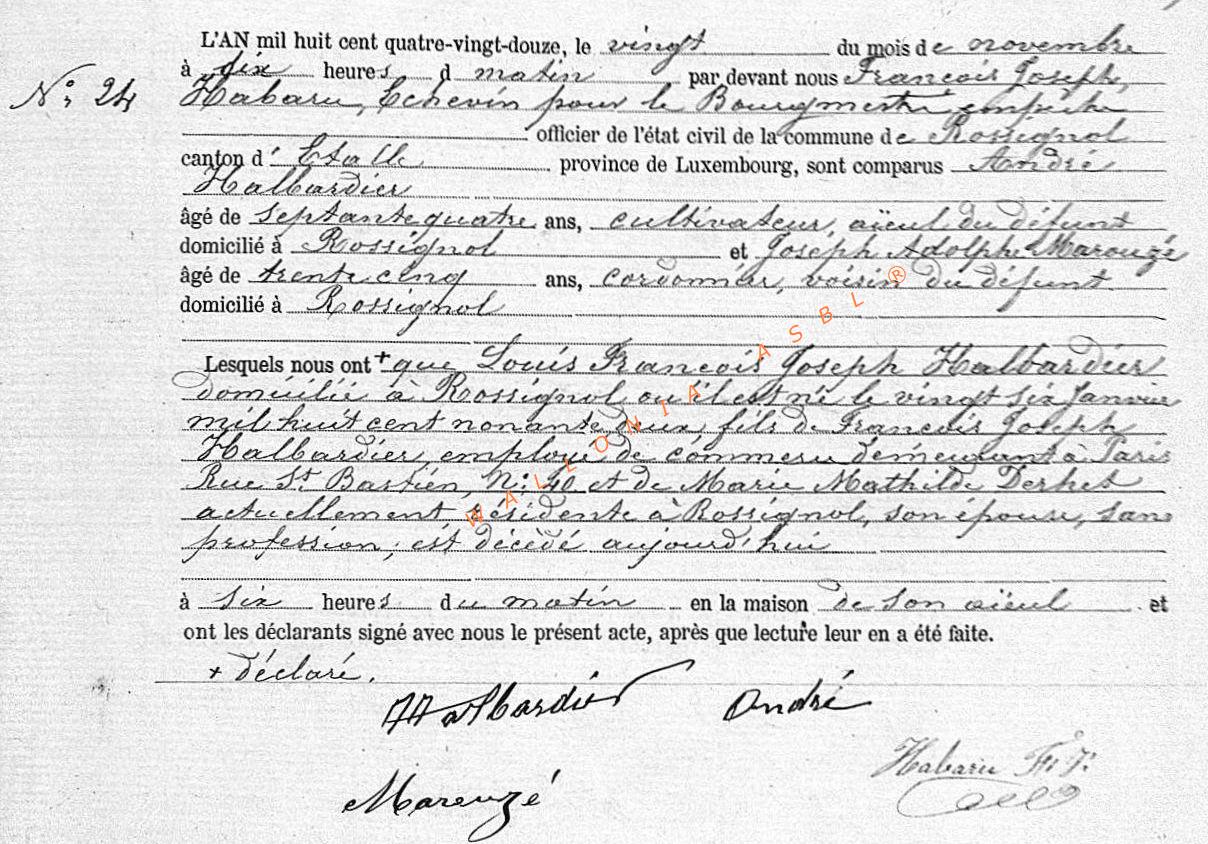 L'AN mil huit cent quatre-vingt-douze, le vingt du mois de novembre
à dix heures d matin par devant nous François Joseph,
N° 24 Habaru, Echevin pour le Bourgmestre empêché
officier de l'état civil de la commune de Rossignol
canton d' Etalle province de Luxembourg, sont comparus André
Halbardier
âgé de septante quatre ans, cultivateur, aïeul du défunt
domicilié à Rossignol et Joseph Adolphe Marouzé
âgé de trente cinq ans, cordonnier, voisin du défunt
domicilié à Rossignol
Lesquels nous ont + que Louis François Joseph Halbardier
domicilié à Rossignol où il est né le vingt six Janvier
mil huit cent nonante deux, fils de François Joseph
Halbardier, employé de commerce demeurant à Paris
Rue St Bastien, N: 40 et de Marie Mathilde Derhet
actuellement résidente à Rossignol, son épouse, sans
profession, est décédé aujourd'hui
à six heures du matin en la maison de son aïeul et
ont les déclarants signé avec nous le présent acte, après que lecture leur en a été faite.
+ déclaré.
Halbardier André
Habaru F. J.
Marouzé
WALLONIA ASBL ®